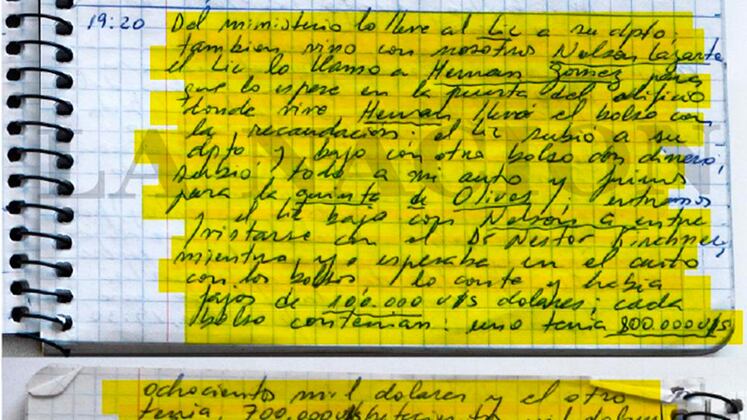 19:20 Del ministerio lo lleve al Lic a su dpto,
tambien vino con nosotros Nelson Lazarte
el Lic lo llamo a Hernan Gomez para
que lo espere en la puerta del edificio
donde vive Hernan llevó el bolso con
la recaudacion; el Lic subio a su
dpto y bajo con otro bolso con dinero,
subio todo a mi auto y fuimos
para la quinta de Olivos; entramos
y el Lic bajo con Nelson a entre
vistarse con el Dr Nestor Kirchner,
mientras yo esperaba en el auto
con los bolsos lo conte y habia
fajos de 100.000 U$S dolares; cada
bolso contenian: uno tenia 800.000 U$S
ochocientos mil dolares y el otro
tenia, 700.000 U$S setecientos mil dolares
LA NACION